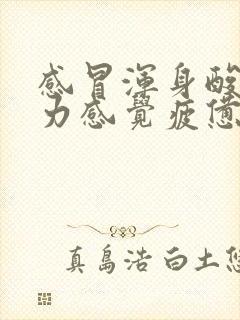 感冒渾身酸
力感覺疲憊
真島浩 白土悠